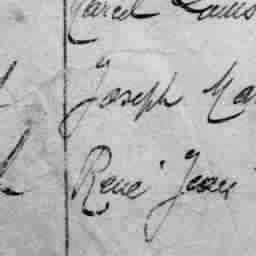 Marcel Louis
Joseph Ma
René Jean